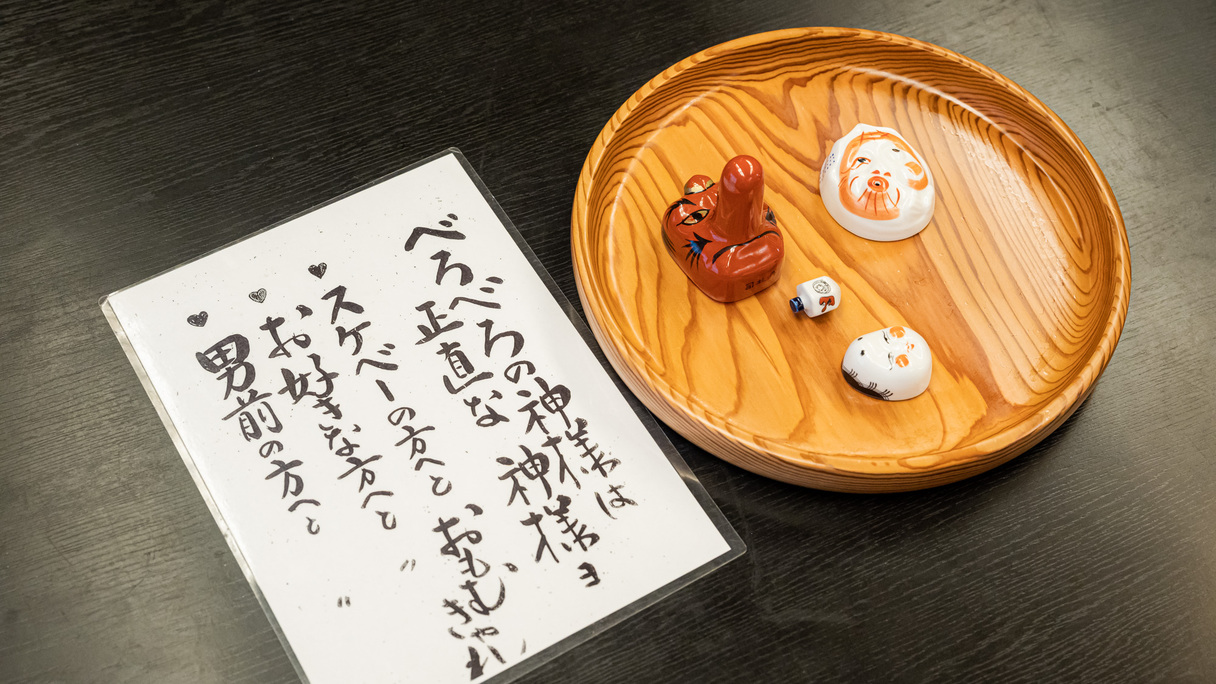 べろべろの神様は
正直な神様ヨ
スケベーの方へと おもむきゃれ
お好きな方へと 〃
男前の方へと 〃